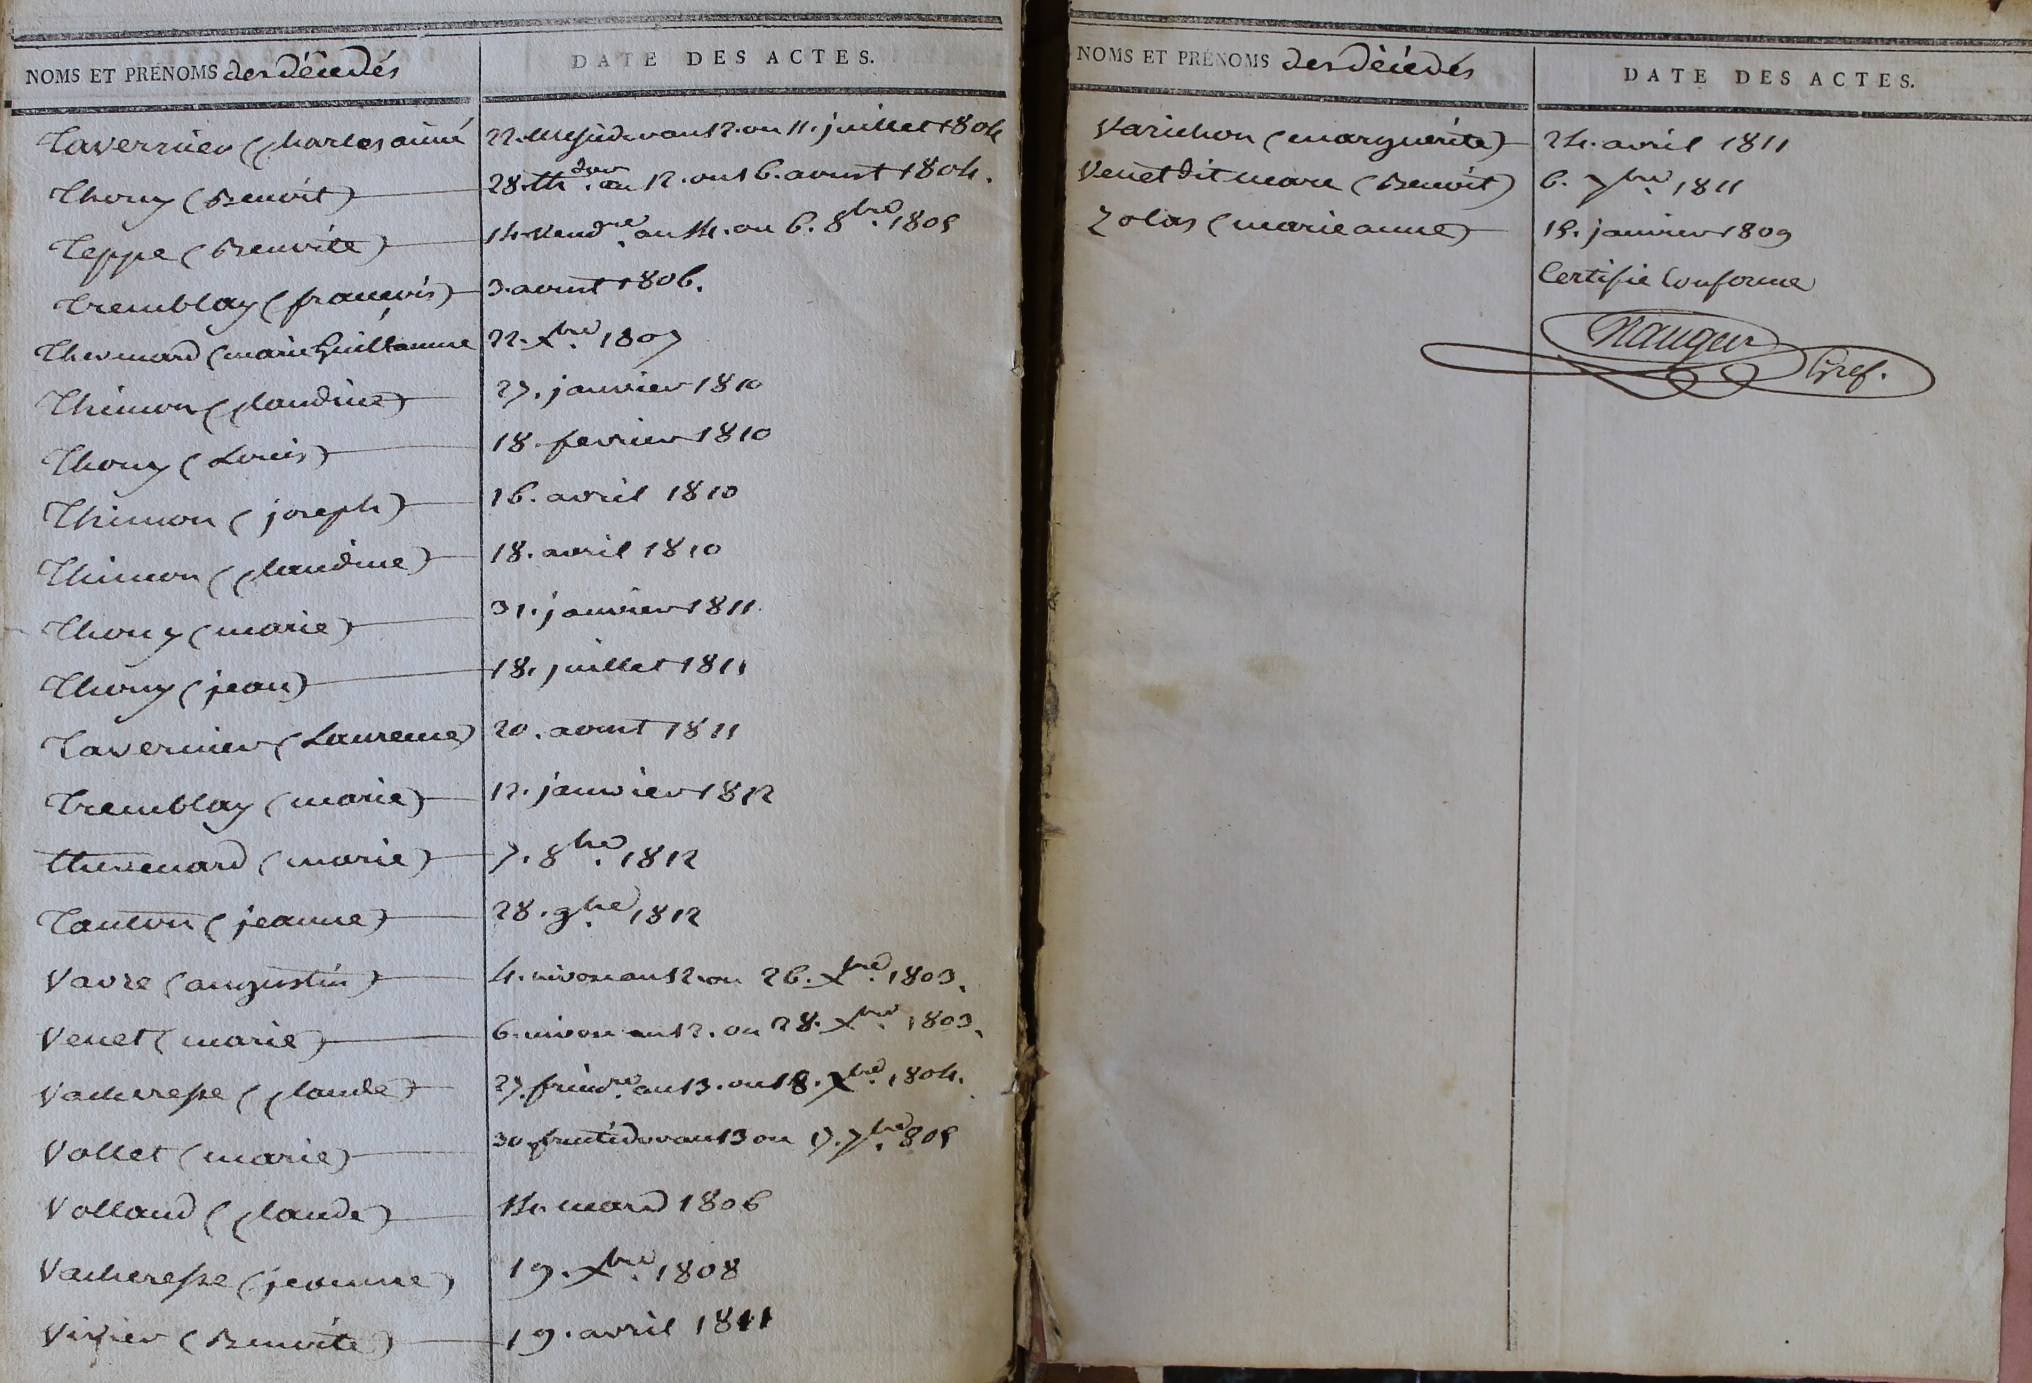 NOMS ET PRÉNOMS des Décédés DATE DES ACTES.
Tavernier (Charles aimé 22. Messidor an 12. ou 11. juillet 1804
Thouy (Benoit) 28. th.dor an 12. ou 16. aoust 1804.
Teppe (Benoite) 14. Vendre. an 14. ou 6. 8bre. 1805
Tremblay (françois) 3. aoust 1806.
Thevenard (marie Guillaume 22. Xbre. 1807
Thimon (Claudine) 27. janvier 1810
Thouy (Louis) 18. fevrier 1810
Thimon (joseph) 16. avril 1810
Thimon (Claudine) 18. avril 1810
Thouy (marie) 31. janvier 1811
Thouy (jean) 18. juillet 1811
Tavernier (Laurence) 20. aoust 1811
Tremblay (marie) 12. janvier 1812
thevenard (marie) 7. 8bre. 1812
Tanton (jeanne) 28. 9bre. 1812
Vavre (augustin) 4. nivose an 12. ou 26. Xbre. 1803.
Venet (marie) 6. nivose an 12. ou 28. Xbre. 1803.
Vacheresse (Claude) 27. frimre. an 13. ou 18. Xbre. 1804.
Vollet (marie) 30. fructidor an 13 ou 17. 7bre. 1805
Volland (Claude) 14. mars 1806
Vacheresse (jeanne) 19. Xbre. 1808
Vivier (Benoite) 19. avril 1811
NOMS ET PRÉNOMS des Décédés DATE DES ACTES.
Varichon (marguerite) 24. avril 1811
Venet dit mare (Benoit) 6. 7bre. 1811
Zolas (marie anne) 15. janvier 1809
Certifié Conforme
Nauger Gref.